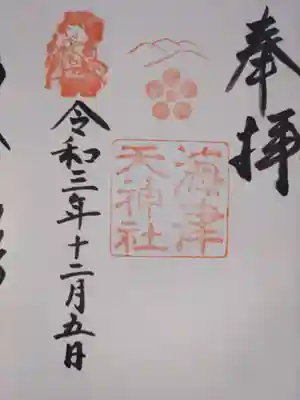 奉拝
海津
天神社
令和三年十二月五日